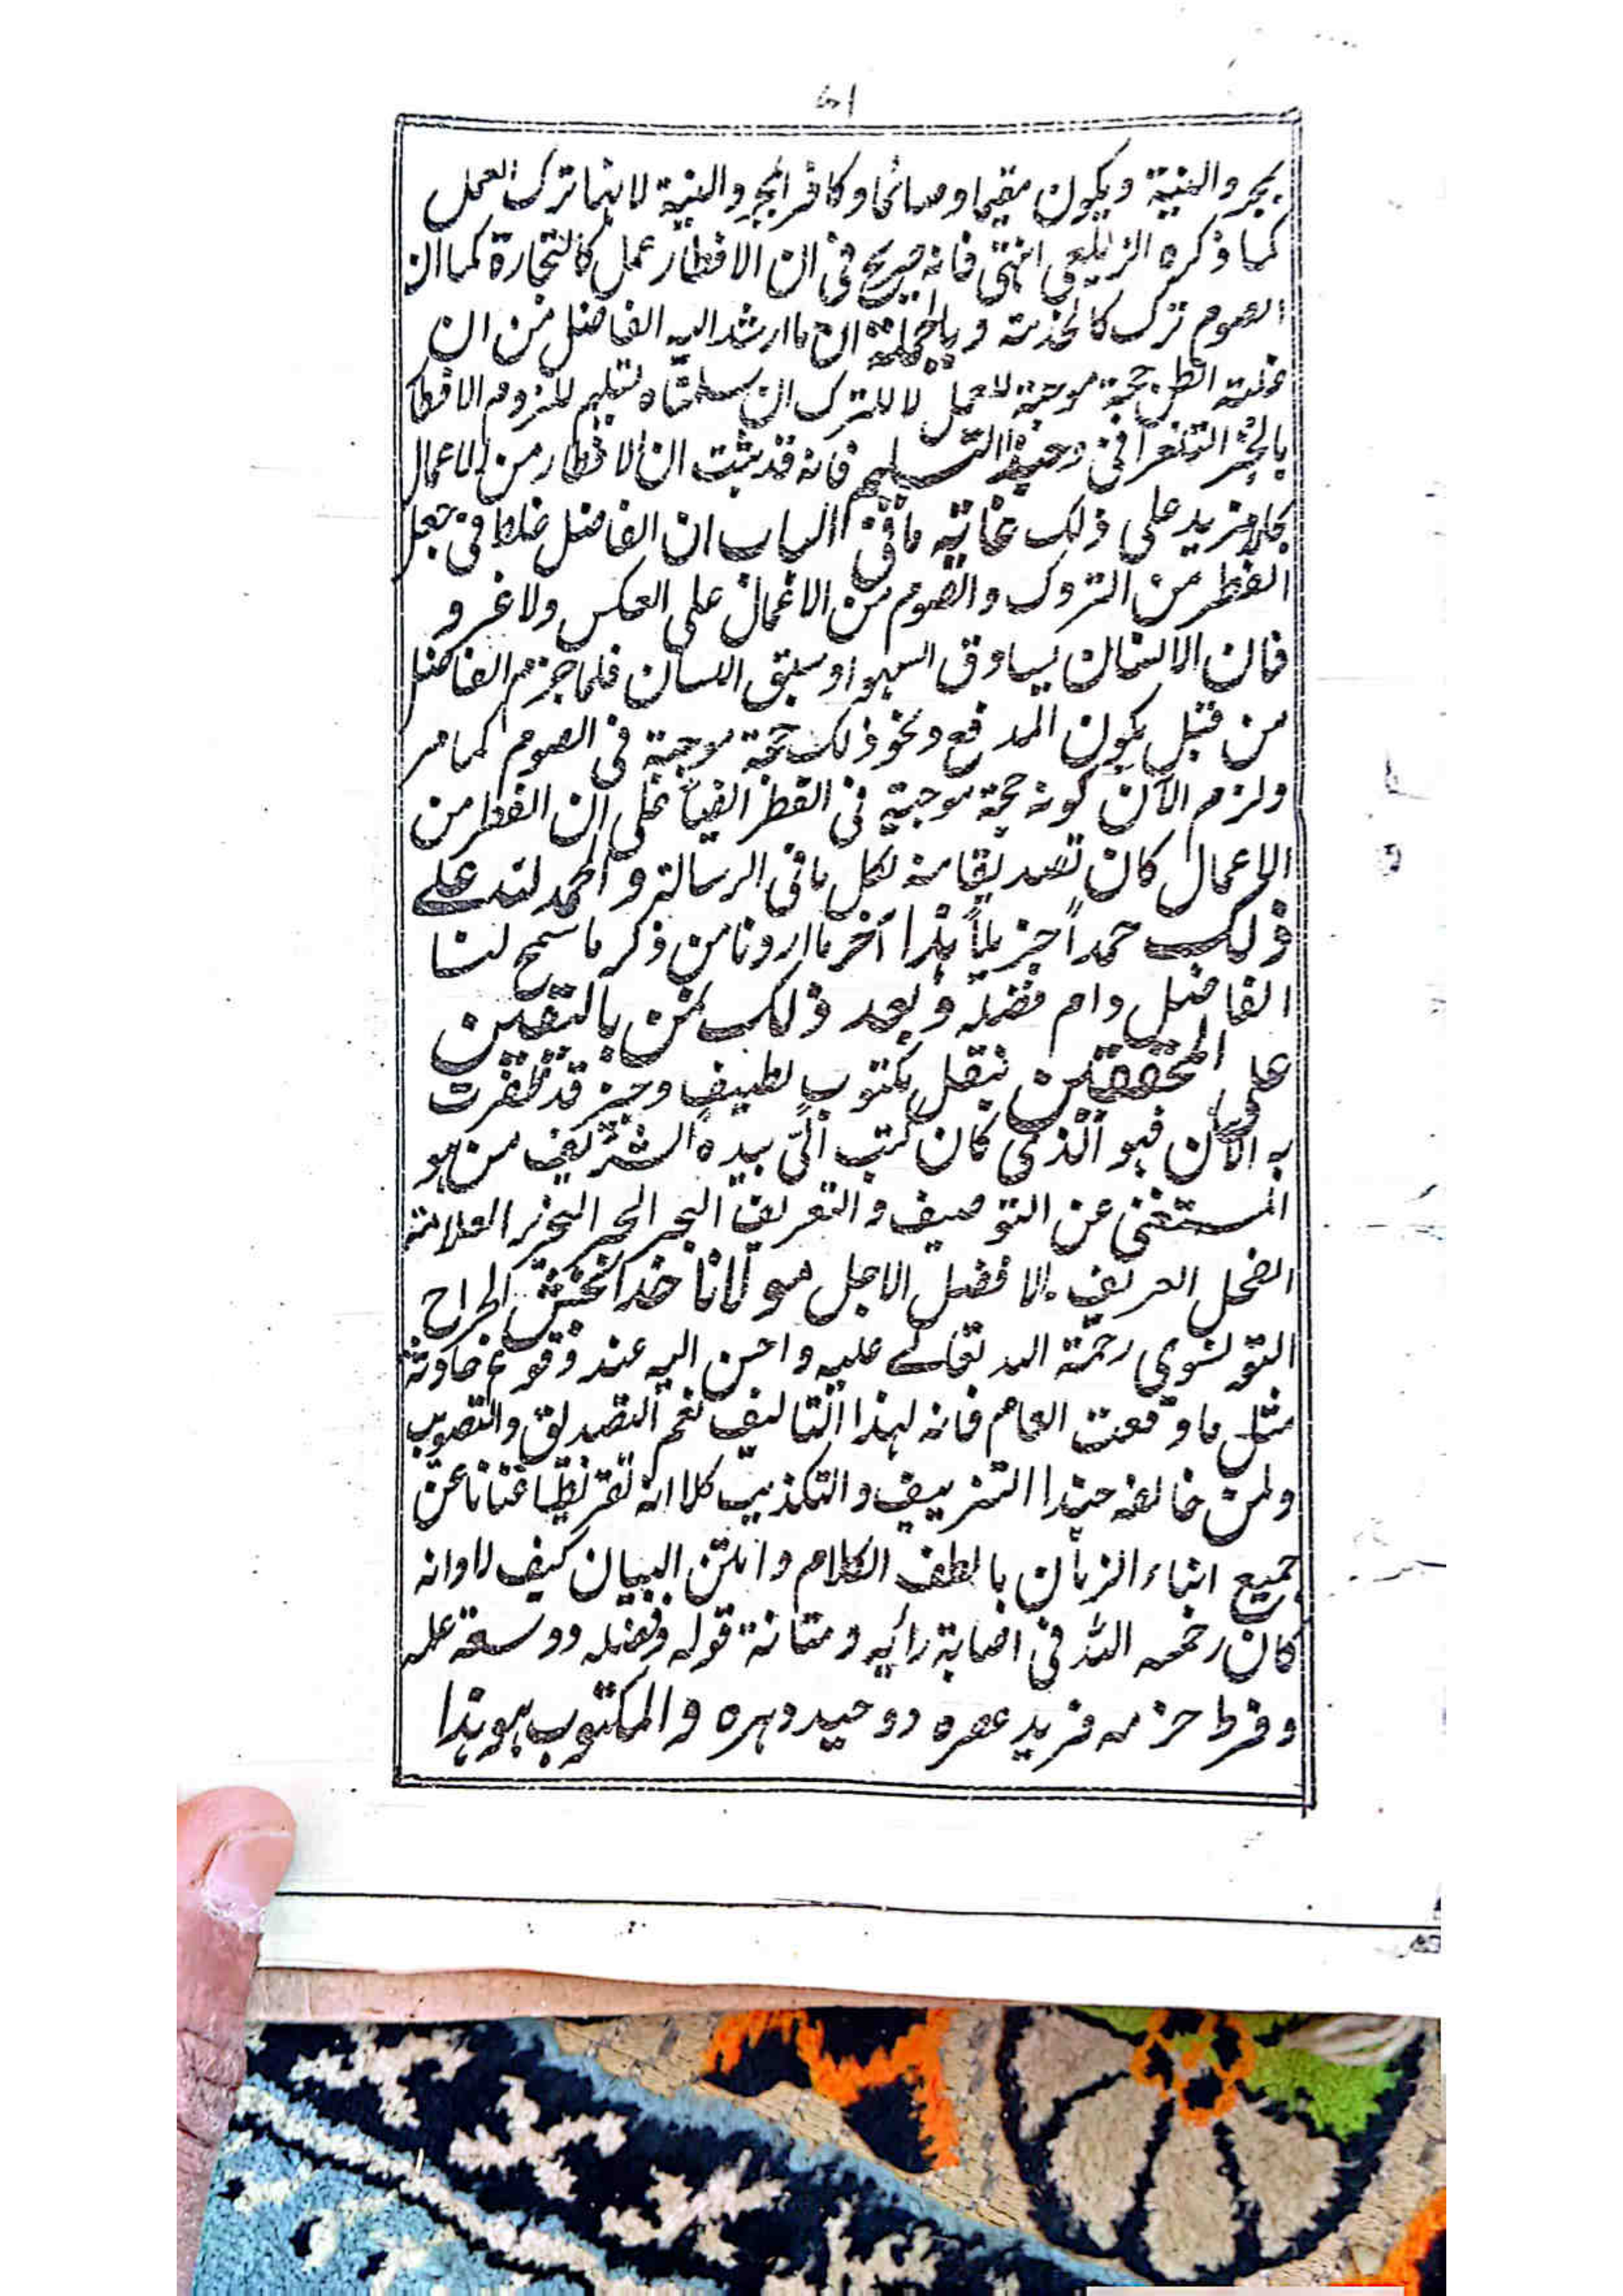 ۵۱
بمجرد النية ويكون مقيما وصائما وكافرا بمجرد النية لانها ترك العمل
كما ذكره الزيلعى انتهى فانه صريح فى ان الافطار عمل كالتجارة كما ان
الصوم ترك كالخدمة وبالجملة ان ما ارشد اليه الفاضل من ان
غلبة الظن حجة موجبة للعمل لا للترك ان سلمناه تسليم للزوم الافطار
بالخبر التلغرافى وحبذا التسليم فانه قد ثبت ان الافطار من الاعمال
بما لا مزيد على ذلك غاية ما فى الباب ان الفاضل غلط فى جعل
الفطر من التروك والصوم من الاعمال على العكس ولا غرو
فان الانسان يساوق السهو او سبق اللسان فلما جزم الفاضل
من قبل بكون المدفع ونحو ذلك حجة موجبة فى الصوم كما مر
ولزم الآن كونه حجة موجبة فى الفطر ايضا على ان الفطر من
الاعمال كان تصديقا منه لكل ما فى الرسالة والحمد لله على
ذلك حمداً جزيلاً هذا آخر ما اردنا من ذكر ما سمح لنا
الفاضل دام فضله وبعد ذلك نمن باليقين
على المحققين بنقل مكتوب لطيف وجيز قد ظفرت
به الآن فهو الذى كان كتب الىّ بيده الشريف من هو
المستغنى عن التوصيف والتعريف البحر الحبر النحرير العلامة
الفحل العريف الافضل الاجل مولانا خدابخش الجراح
التونسوى رحمة الله تعالے عليه واحسن اليه عند وقوع حادثة
مثل ما وقعت العام فانه لهذا التاليف نعم التصديق والتصويب
ولمن خالفه حبذا التزييف والتكذيب كلا انه تقريظا غنانا عن
جميع ابناء الزمان بالطف الكلام واتقن البيان كيف لا وانه
كان رحمه الله فى اصابة رأيه ومتانة قوله وفضله ووسعة علمه
وفرط حزمه فريد عصره ووحيد دهره والمكتوب هو هذا